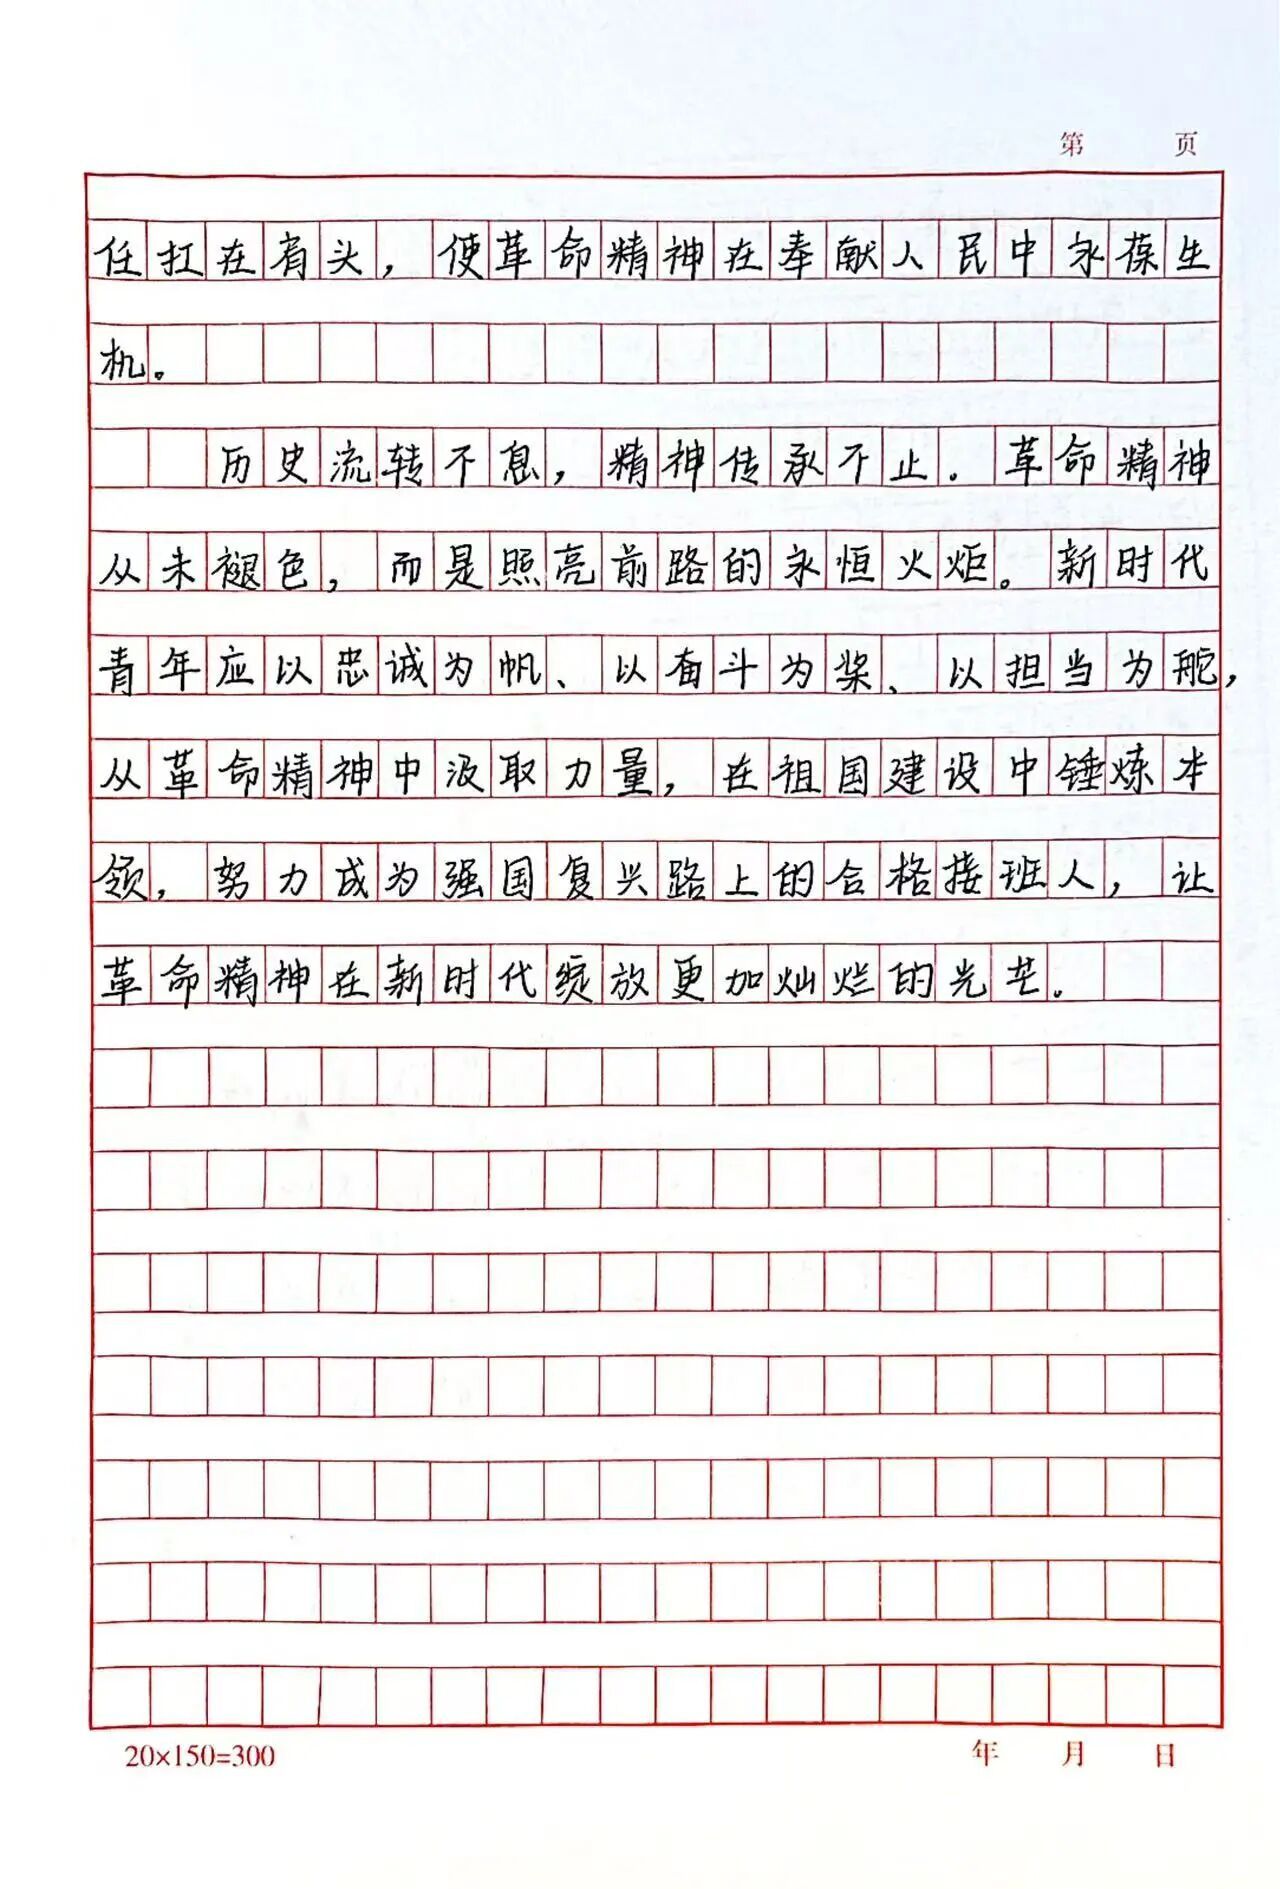 第 页
任扛在肩头，使革命精神在奉献人民中永葆生
机。
历史流转不息，精神传承不止。革命精神
从未褪色，而是照亮前路的永恒火炬。新时代
青年应以忠诚为帆、以奋斗为桨、以担当为舵，
从革命精神中汲取力量，在祖国建设中锤炼本
领，努力成为强国复兴路上的合格接班人，让
革命精神在新时代绽放更加灿烂的光芒。
20×150=300 年 月 日